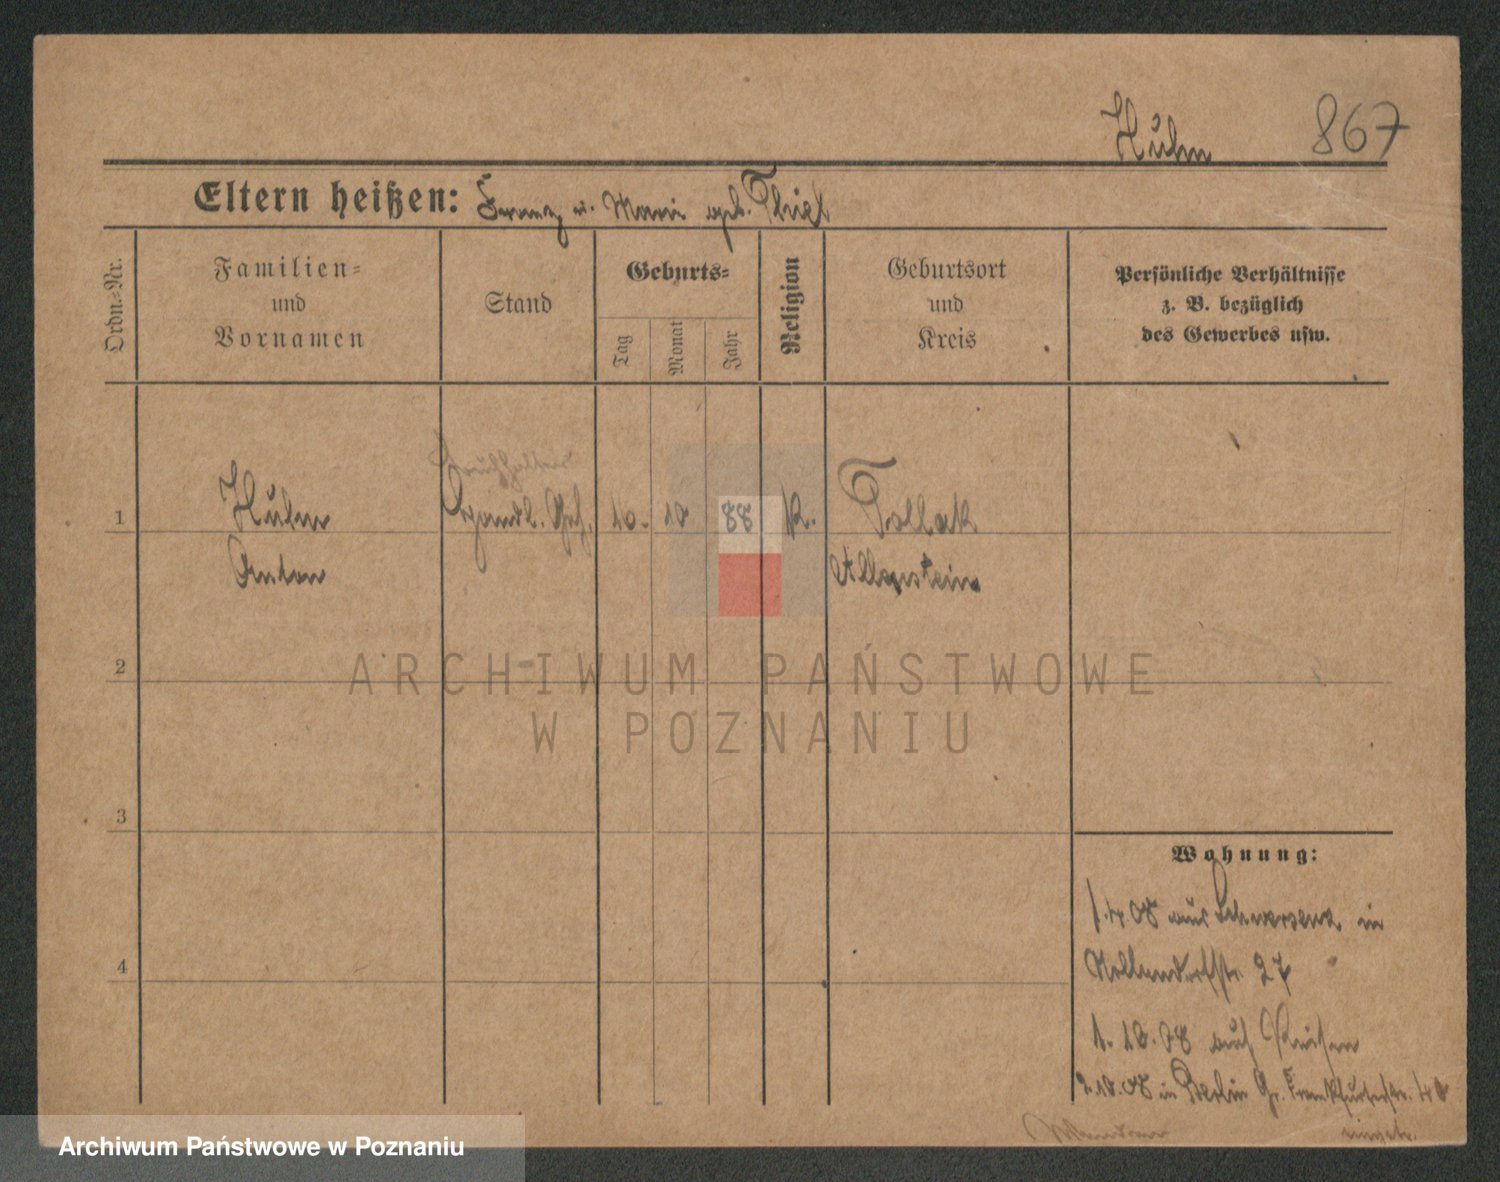 Kuhn 867
Eltern heißen: Franz u. Marie geb. Thiel
Ordn.-Nr.
Familien-
und
Vornamen
Stand
Geburts-
Tag
Monat
Jahr
Religion
Geburtsort
und
Kreis
Persönliche Verhältnisse
z. B. bezüglich
des Gewerbes usw.
Buchhalter
1 Kuhn Handl. Geh. 10. 10 88 K. Tollack
Anton Allenstein
2
3
4
Wohnung:
1.4.08 aus Schwersenz in
Nollendorfstr. 27
1. 10. 08 auf Reisen
2.10.08 in Berlin Gr. Frankfurterstr. 40
ARCHIWUM PAŃSTWOWE
W POZNANIU
Archiwum Państwowe w Poznaniu